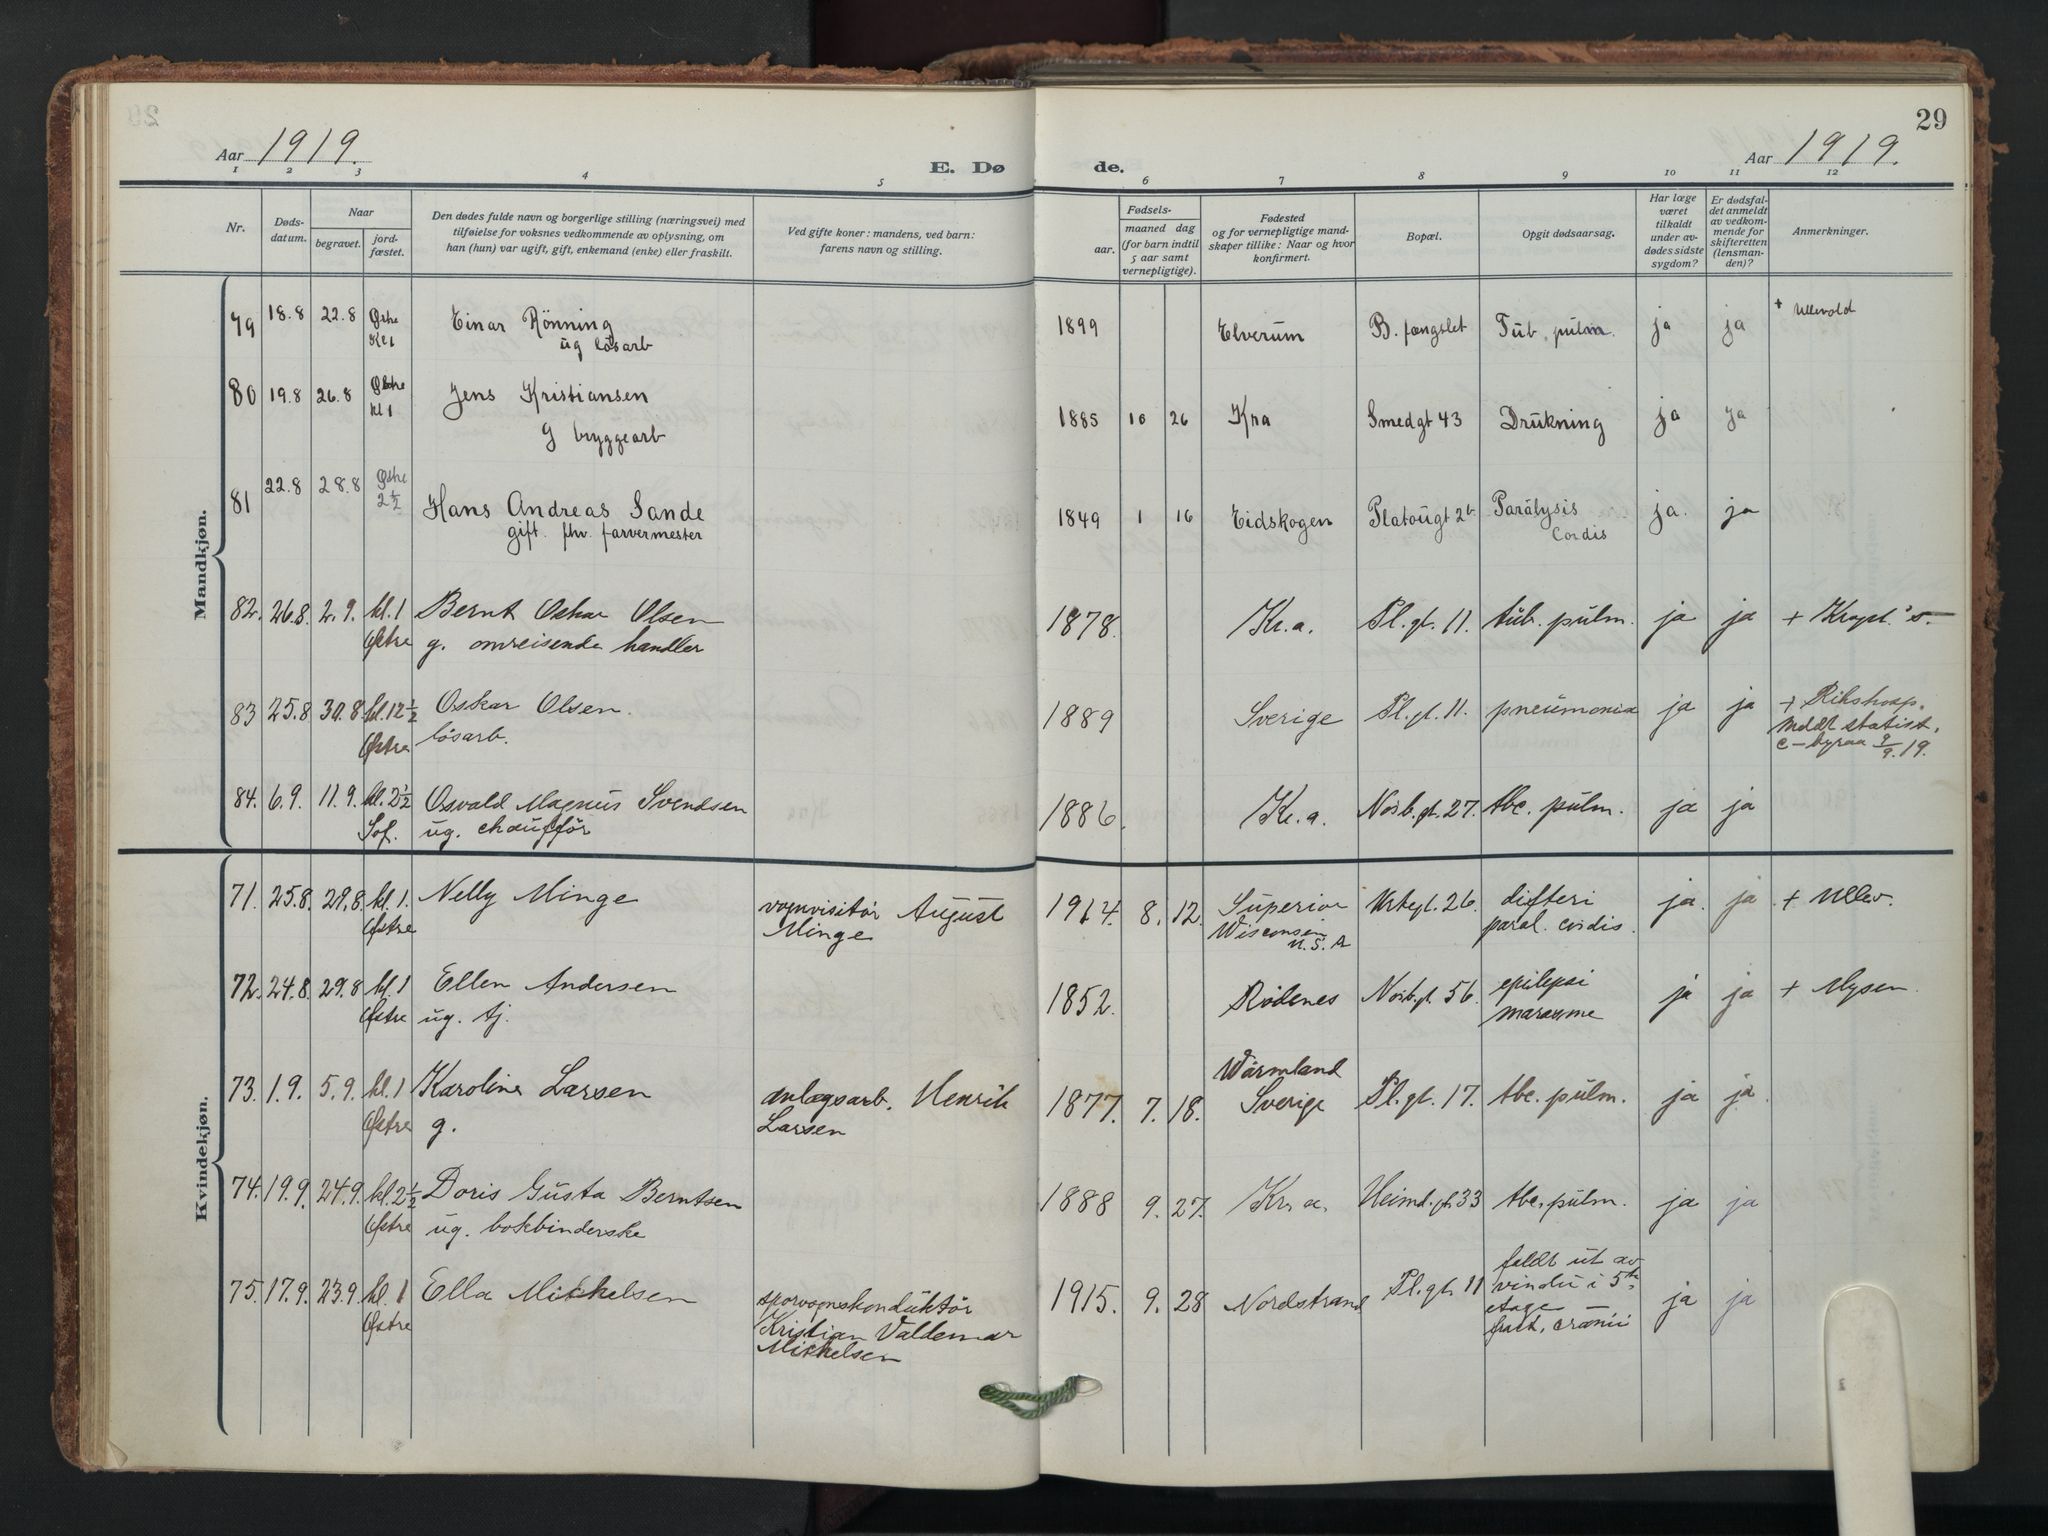 29
Aar 1919.
E. Dø
de.
Aar 1919.
1 2 3 4 5 6 7 8 9 10 11 12
Nr.
Døds-
datum.
Naar
begravet.
jord-
fæstet.
Den dødes fulde navn og borgerlige stilling (næringsvei) med
tilføielse for voksnes vedkommende av oplysning, om
han (hun) var ugift, gift, enkemand (enke) eller fraskilt.
Ved gifte koner: mandens, ved barn:
farens navn og stilling.
Fødsels-
aar.
maaned dag
(for barn indtil
5 aar samt
vernepligtige).
Fødested
og for vernepligtige mand-
skaper tillike: Naar og hvor
konfirmert.
Bopæl.
Opgit dødsaarsag.
Har læge
været
tilkaldt
under av-
dødes sidste
sygdom?
Er dødsfal-
det anmeldt
av vedkom-
mende for
skifteretten
(lensman-
den)?
Anmerkninger.
Mandkjøn.
79 18.8 22.8 Østre Einar Rönning 1899 Elverum B. fængslet Tub. pulm. ja ja + Ullevold
Kl 1 ug løsarb
80 19.8 26.8 Østre Jens Kristiansen 1885 10 26 Kra Smedgt 43 Drukning ja ja
kl 1 G bryggearb
81 22.8 28.8 Østre Hans Andreas Sande 1849 1 16 Eidskogen Platougt 2b Paralysis ja. ja
2½ gift. fhv. farvermester Cordis
82. 26.8. 2.9. kl. 1 Bernt Oskar Olsen 1878. Kr.a. Pl.gt. 11. tub. pulm. ja ja + Krapt.'s.
Østre g. omreisende handler
83 25.8 30.8. kl. 12½ Oskar Olsen. 1889 Sverige Pl.gt. 11. pneumonia ja ja + Rikshosp.
Østre løsarb. meldt statist.
c-byraa 9/9.19.
84. 6.9. 11.9. kl. 2½ Osvald Magnus Svendsen 1886. Kr.a. Norb.gt. 27. tbc. pulm. ja ja
Sof. ug. chauffør
Kvindekjøn.
71. 25.8. 29.8. kl. 1. Nelly Minge vognvisitør August 1914. 8. 12. Superior Urtegt. 26. difteri ja. ja. + Ullev.
Østre Minge Wisconsin paral. cordis.
U.S.A
72. 24.8. 29.8 kl. 1 Ellen Andersen 1852. Rödenes Norb.gt. 56. epilepsi ja ja + Mysen.
Østre ug. tj. marasme
73. 1.9. 5.9. kl. 1 Karoline Larsen anlægsarb. Henrik 1877. 7. 18. Wärmland Pl.gt. 17. tbc. pulm. ja ja.
Østre g. Larsen Sverige
74. 19.9. 24.9. kl. 2½ Doris Gusta Berntsen 1888 9. 27. Kr.a. Heimd.gt. 33 tbc. pulm. ja ja
Østre ug. bokbinderske
75. 17.9. 23.9. kl. 1 Ella Mikkelsen sporvognskonduktør 1915. 9. 28 Nordstrand Pl.gt. 11 faldt ut av
Østre Kristian Valdemar vindu i 5te ja ja
Mikkelsen etage
fract. cranii